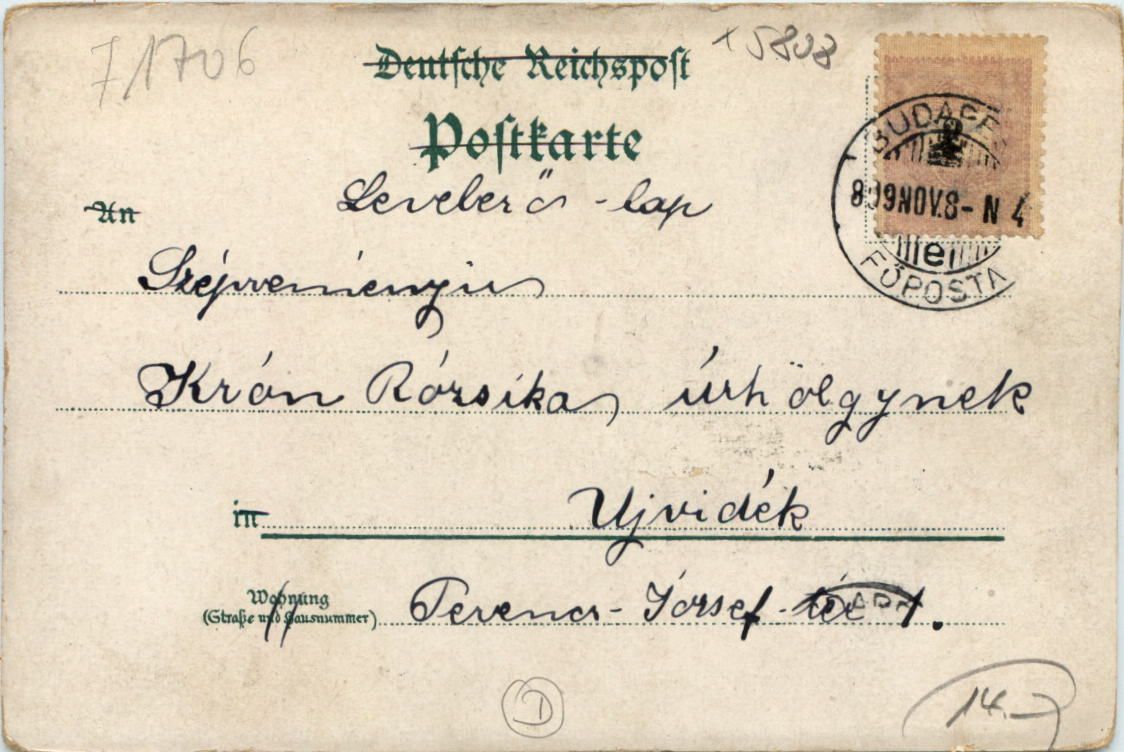 71706
15808
Deutsche Reichspost
Postkarte
BUDAPES
2
899 NOV. 8 - N 4
e
FŐPOSTA
Levelező-lap
An
Szépreményű
Krón Rózsika úrhölgynek
in Ujvidék
Wohnung
(Straße und Hausnummer)
Ferencz-József-tér 1.
D
14.-